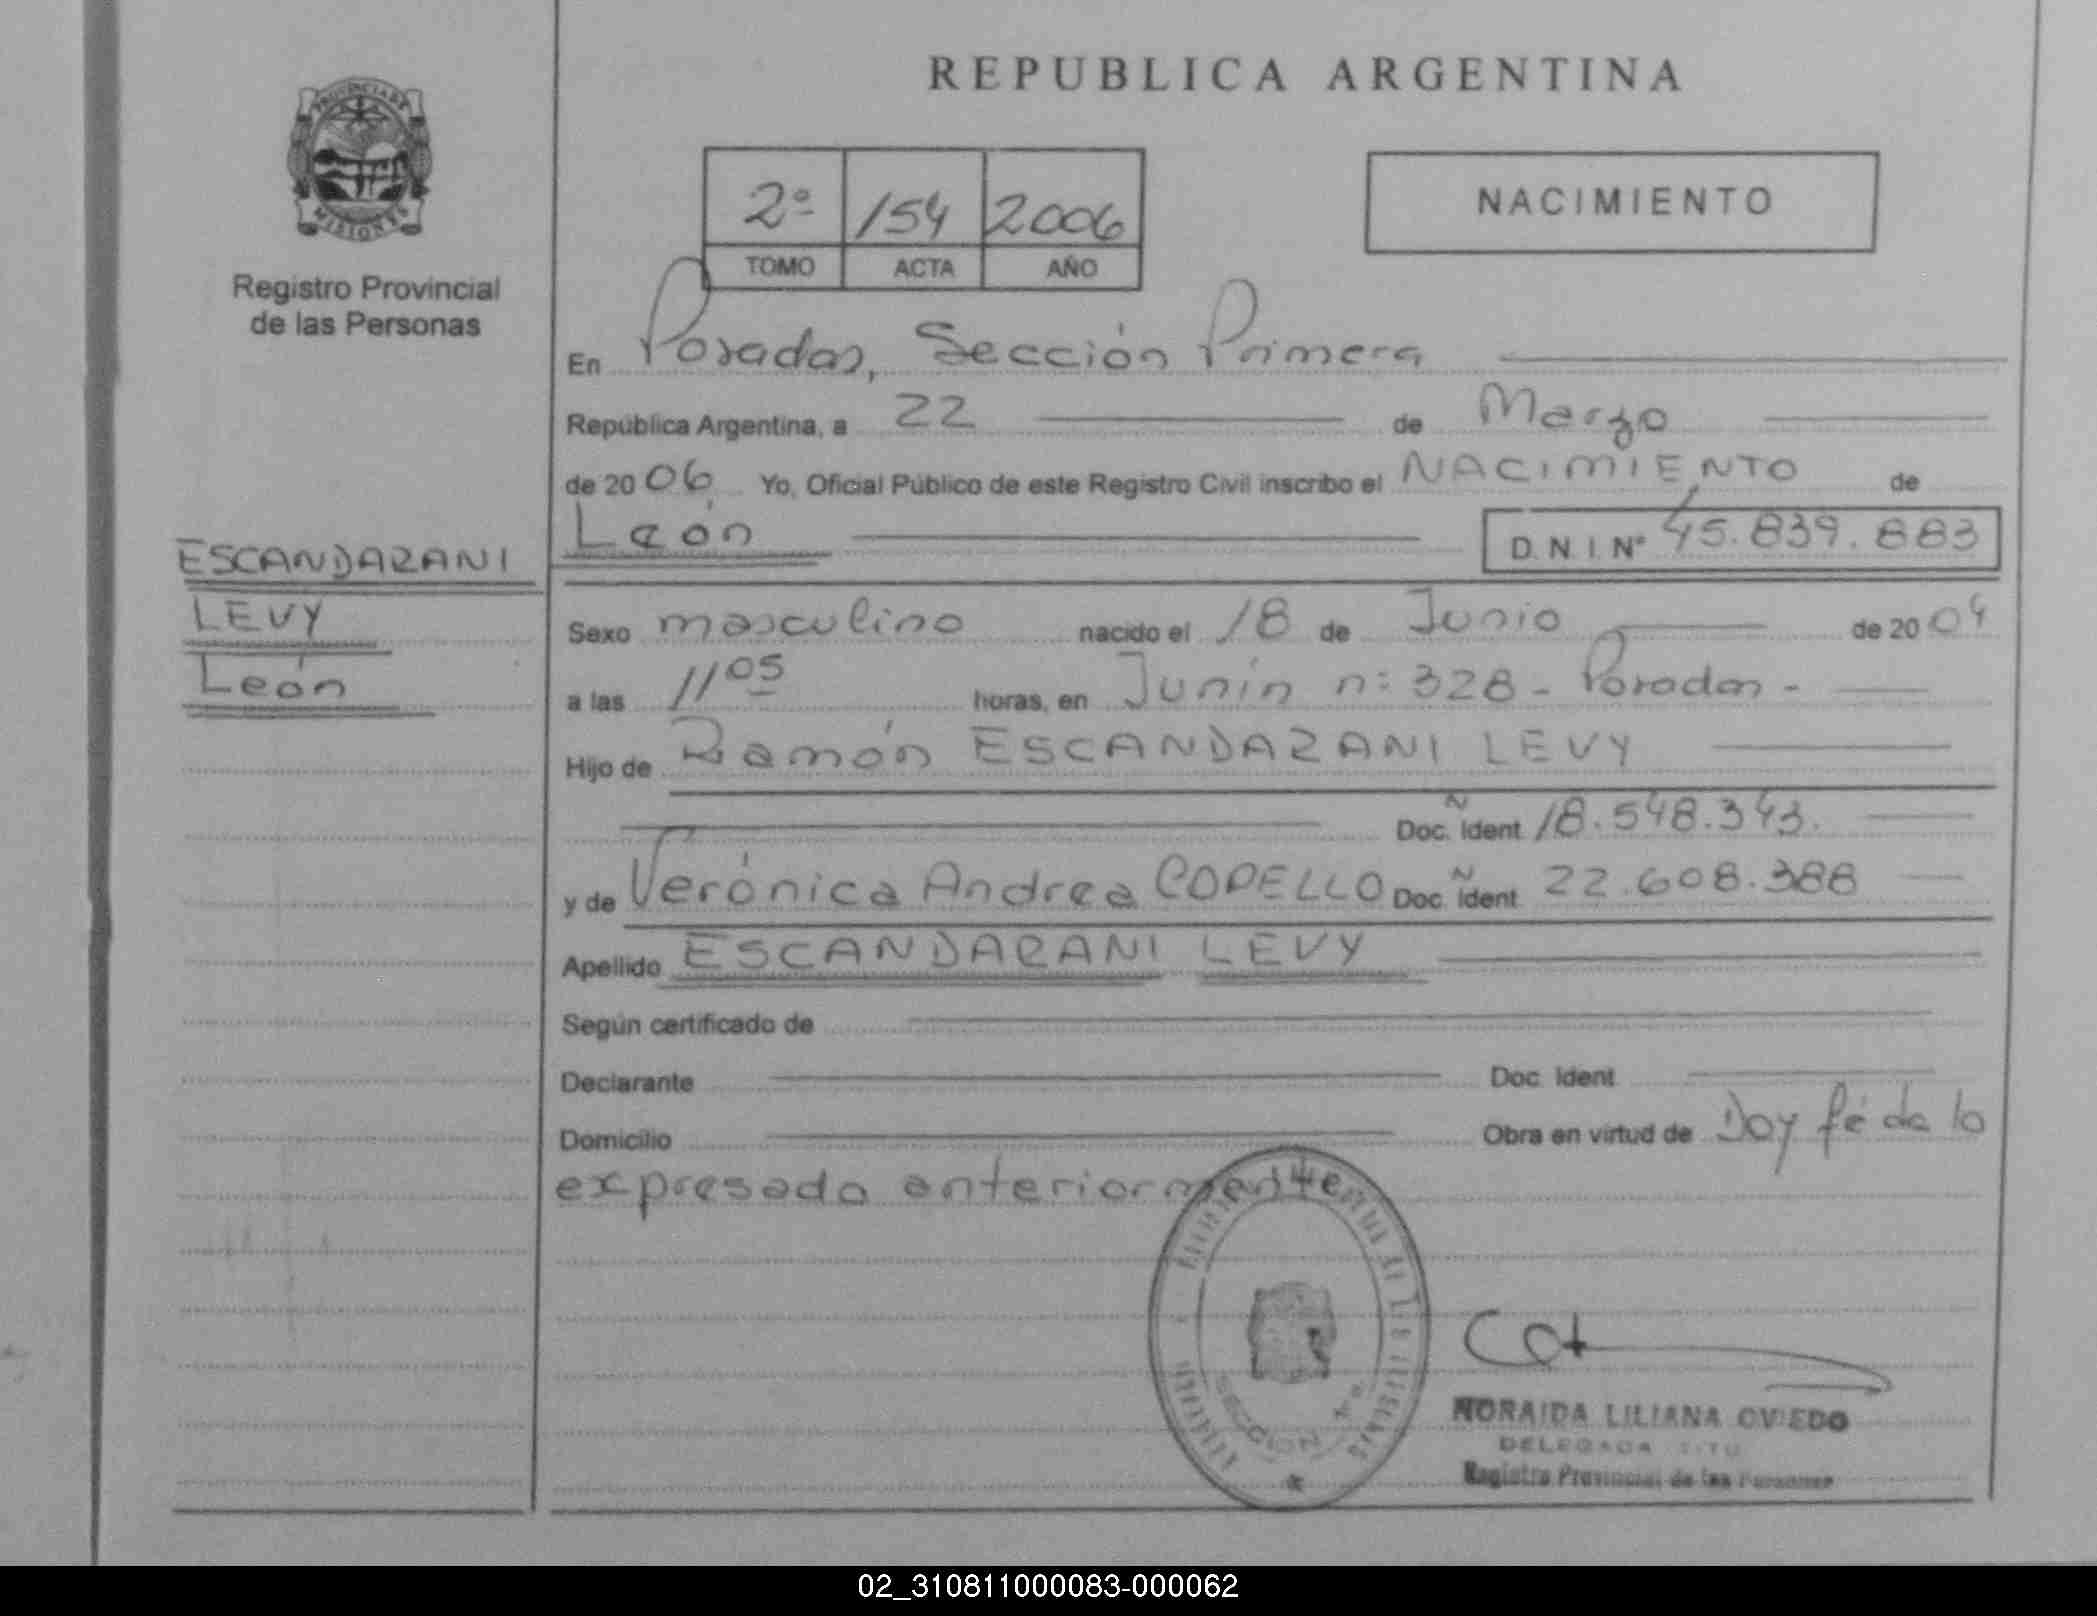 REPUBLICA ARGENTINA
PROVINCIA DE
MISIONES
Registro Provincial
de las Personas
2º 154 2006
TOMO ACTA AÑO
NACIMIENTO
En Posadas, Sección Primera
República Argentina, a 22 de Marzo
de 2006 Yo, Oficial Público de este Registro Civil inscribo el NACIMIENTO de
León D.N.I.Nº 45.839.883
ESCANDARANI
LEVY
León
Sexo masculino nacido el 18 de Junio de 2004
a las 11 05 horas, en Junín nº 328 - Posadas -
Hijo de Ramón ESCANDARANI LEVY
Doc. Ident 18.548.343.
y de Verónica Andrea COPELLO Doc. Ident 22.608.388
Apellido ESCANDARANI LEVY
Según certificado de
Declarante Doc. Ident
Domicilio Obra en virtud de Doy fé de lo
expresado anteriormente
SECCION 1ª
NORAIDA LILIANA OVIEDO
DELEGADA TITU
Registro Provincial de las Personas
02_310811000083-000062